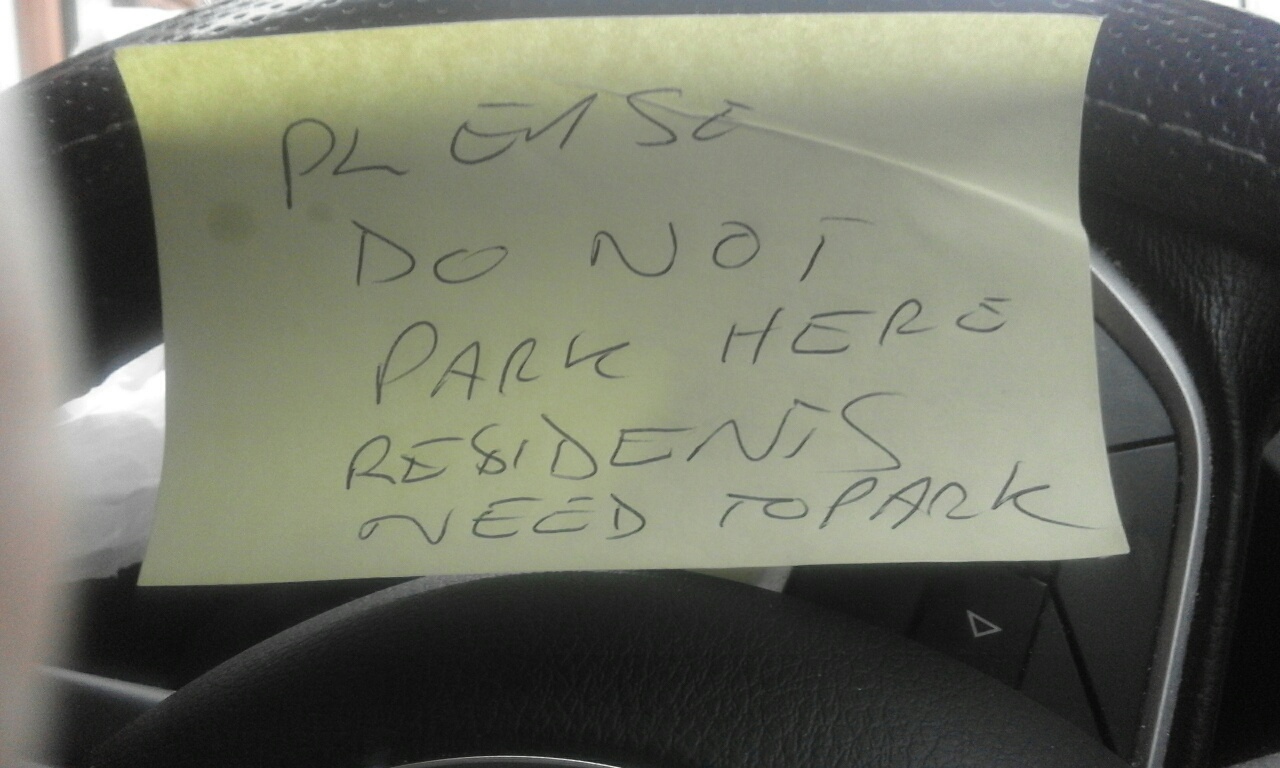 PLEASE
DO NOT
PARK HERE
RESIDENTS
NEED TO PARK